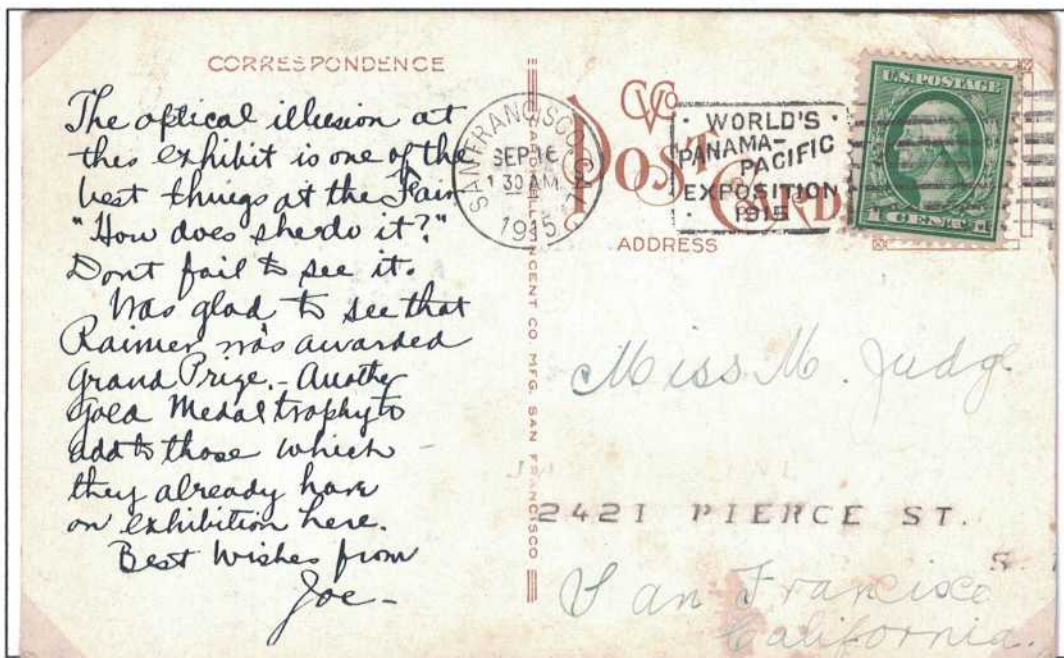 CORRESPONDENCE
The optical illusion at
this exhibit is one of the
best things at the Fair
"How does she do it?"
Dont fail to see it.
Was glad to see that
was awarded
Grand Prize. - Another
Gold Medal trophy to
add to those which
they already have
on exhibition here.
Best Wishes from
Joe -
SAN FRANCISCO, CAL.
SEP 16
1915
WORLD'S
PANAMA-
PACIFIC
EXPOSITION
1915
POST CARD
ADDRESS
U.S. POSTAGE
1 CENT 1
CO. MFG. SAN FRANCISCO
Miss M. Judge
2421 PIERCE ST.
S.
San Francisco
California.